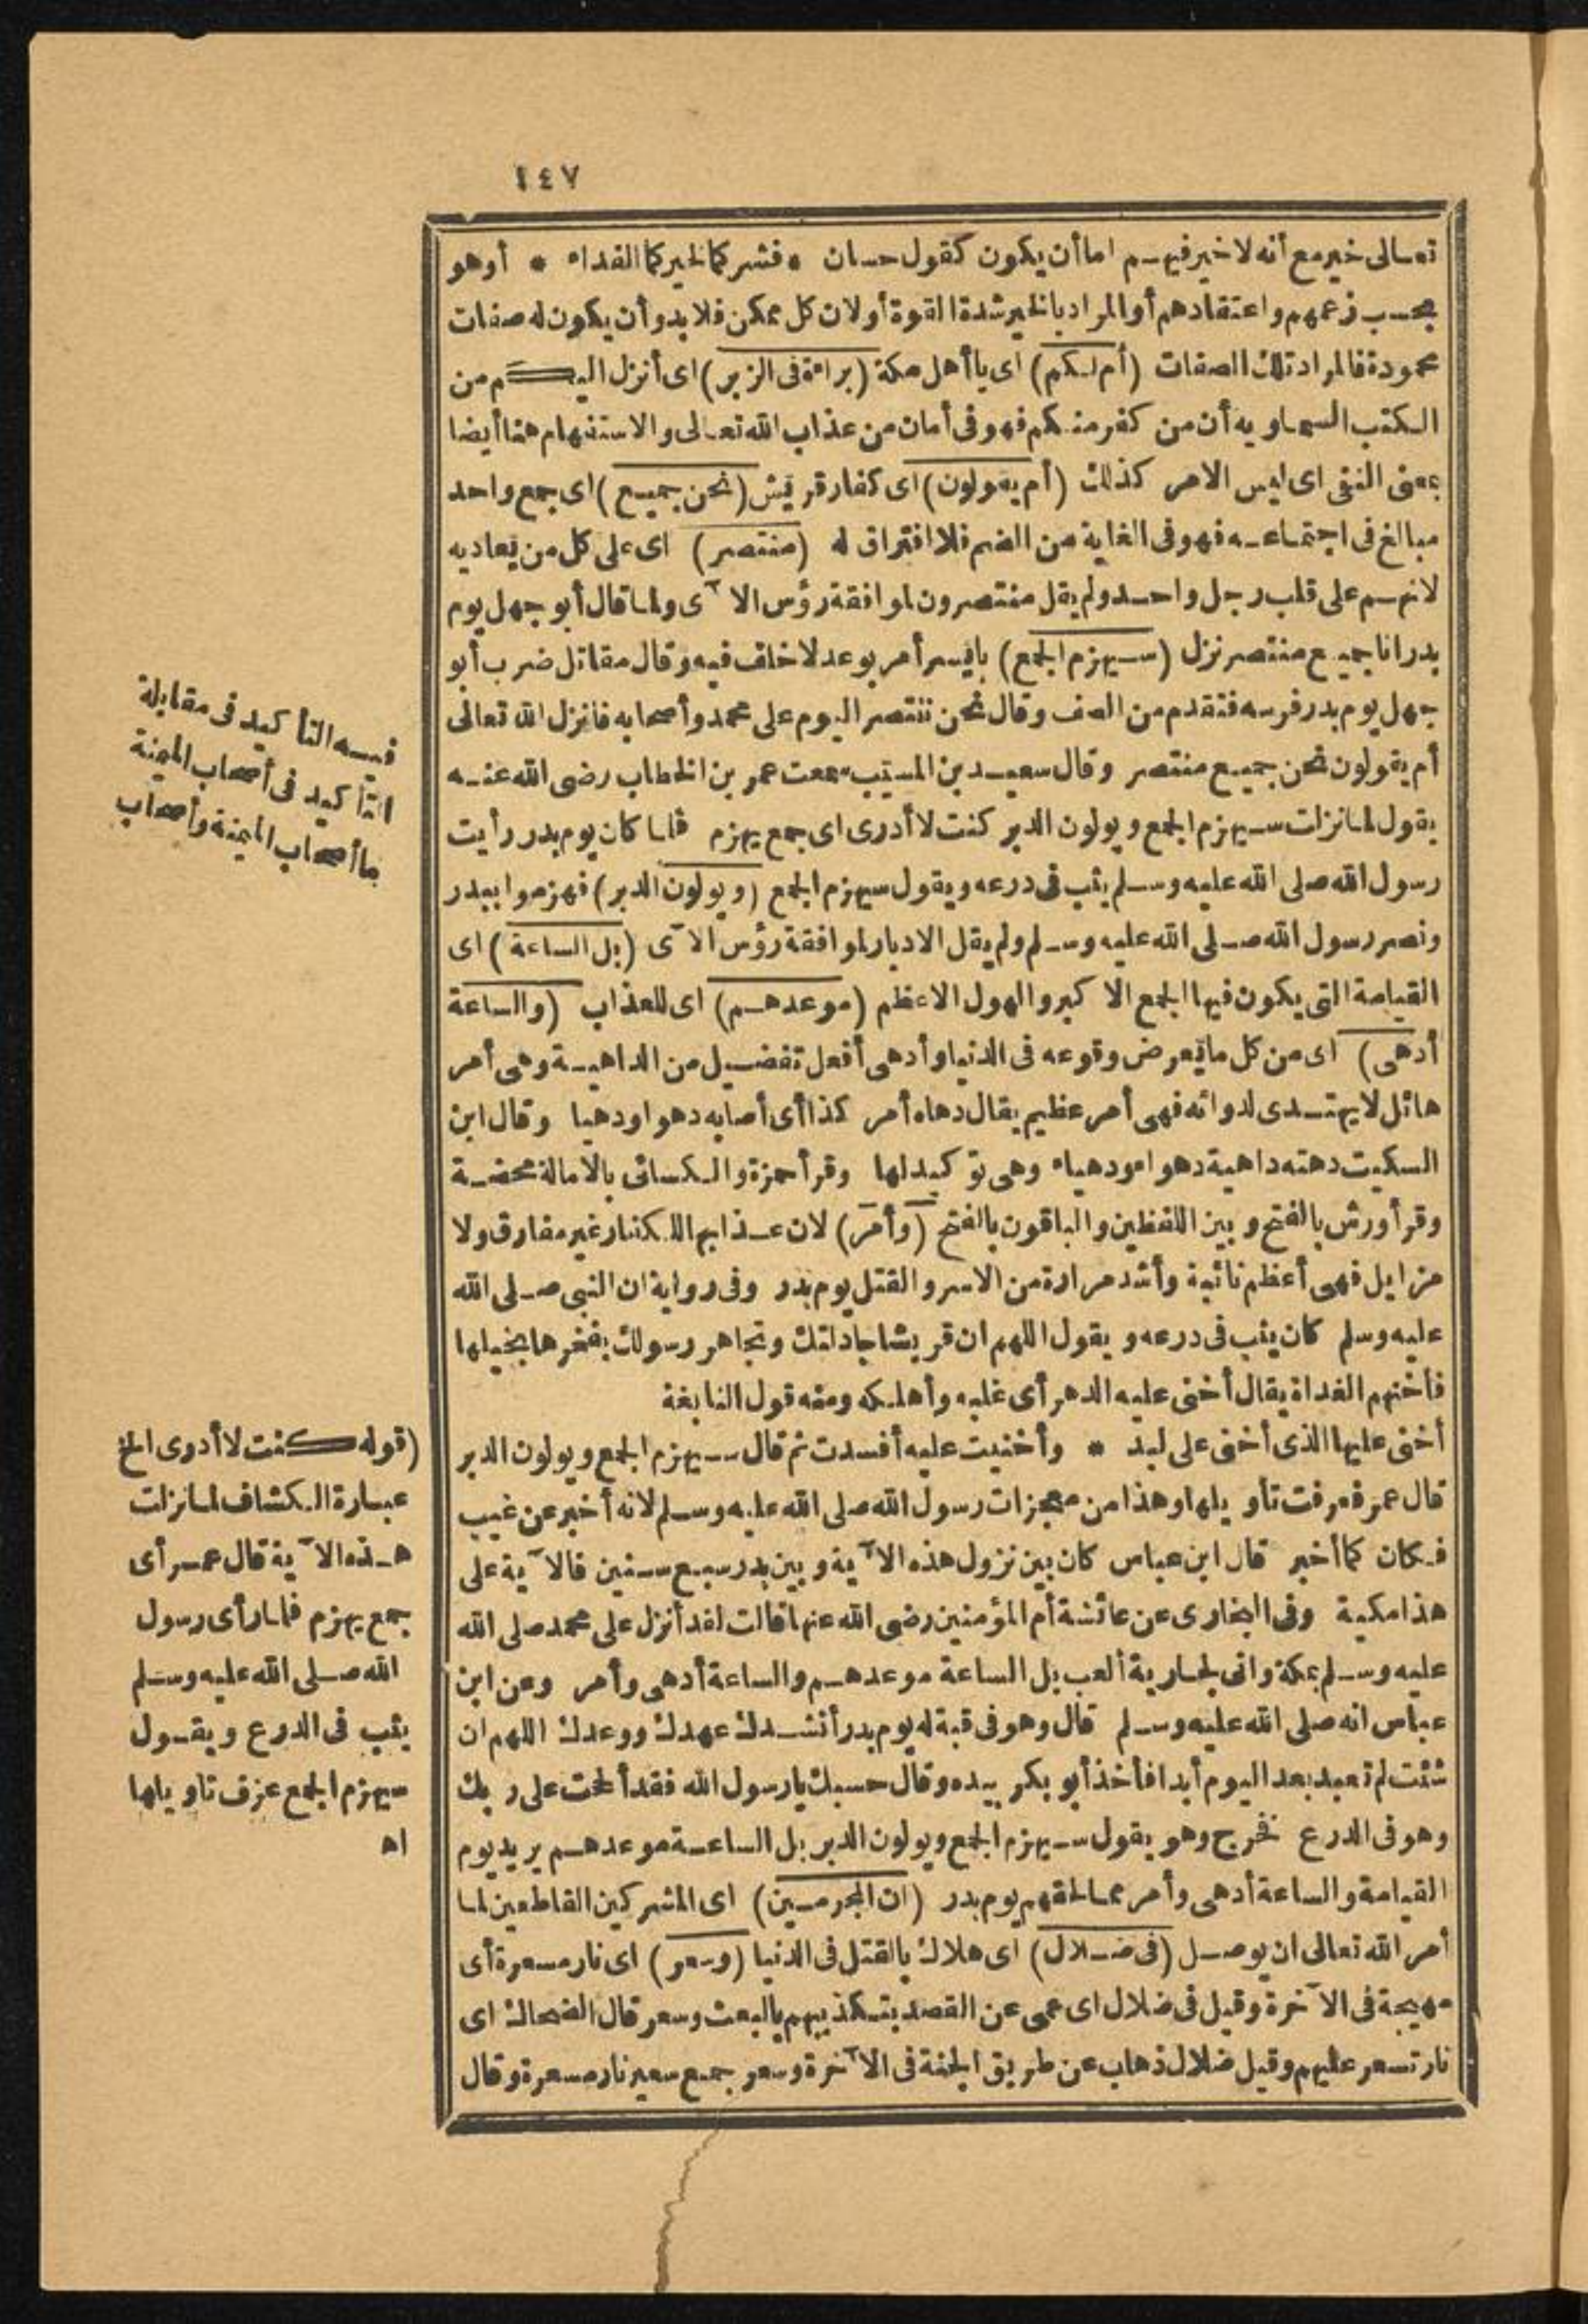 ١٤٧
تعالى خير مع أنه لا خير فيهم اما أن يكون كقول حسان * فشركما لخيركما الفداء * أو هو
بحسب زعمهم واعتقادهم أو المراد بالخير شدة القوة أو لان كل ممكن فلا بد وأن يكون له صفات
محمودة فالمراد تلك الصفات (أم لكم) اى يا أهل مكة (براءة فى الزبر) اى أنزل اليكم من
الكتب السماويه أن من كفر منكم فهو فى أمان من عذاب الله تعالى والاستفهام هنا أيضا
بمعنى النفى اى ليس الامر كذلك (أم يقولون) اى كفار قريش (نحن جميع) اى جمع واحد
مبالغ فى اجتماعه فهو فى الغاية من الضم فلا افتراق له (منتصر) اى على كل من يعاديه
لانهم على قلب رجل واحد ولم يقل منتصرون لموافقة رؤس الآى ولما قال أبو جهل يوم
بدر انا جميع منتصر نزل (سيهزم الجمع) بايسر أمر بوعد لا خلف فيه وقال مقاتل ضرب أبو
جهل يوم بدر فرسه فتقدم من الصف وقال نحن ننتصر اليوم على محمد وأصحابه فانزل الله تعالى
أم يقولون نحن جميع منتصر وقال سعيد بن المسيب سمعت عمر بن الخطاب رضى الله عنه
يقول لما نزلت سيهزم الجمع ويولون الدبر كنت لا أدرى اى جمع يهزم فلما كان يوم بدر رأيت
رسول الله صلى الله عليه وسلم يثب فى درعه ويقول سيهزم الجمع (ويولون الدبر) فهزموا ببدر
ونصر رسول الله صلى الله عليه وسلم ولم يقل الادبار لموافقة رؤس الآى (بل الساعة) اى
القيامة التى يكون فيها الجمع الاكبر والهول الاعظم (موعدهم) اى للعذاب (والساعة
أدهى) اى من كل ما يعرض وقوعه فى الدنيا وأدهى أفعل تفضيل من الداهية وهى أمر
هائل لا يهتدى لدوائه فهى أمر عظيم يقال دهاه أمر كذا أى أصابه دهوا ودهيا وقال ابن
السكيت دهته داهية دهواء ودهياء وهى توكيد لها وقرأ حمزة والكسائى بالامالة محضة
وقرأ ورش بالفتح وبين اللفظين والباقون بالفتح (وأمر) لان عذابهم للكفار غير مفارق ولا
مزايل فهى أعظم نائبة وأشد مرارة من الاسر والقتل يوم بدر وفى رواية ان النبى صلى الله
عليه وسلم كان يثب فى درعه ويقول اللهم ان قريشا جادلتك وتجاهر رسولك بفخرها بخيلها
فأخنهم الغداة يقال أخنى عليه الدهر أى غلبه وأهلكه ومنه قول النابغة
أخنى عليها الذى أخنى على لبد * وأخنيت عليه أفسدت ثم قال سيهزم الجمع ويولون الدبر
قال عمر فعرفت تأويلها وهذا من معجزات رسول الله صلى الله عليه وسلم لانه أخبر عن غيب
فكان كما أخبر قال ابن عباس كان بين نزول هذه الآية وبين بدر سبع سنين فالآية على
هذا مكية وفى البخارى عن عائشة أم المؤمنين رضى الله عنها قالت لقد أنزل على محمد صلى الله
عليه وسلم بمكة وانى لجارية ألعب بل الساعة موعدهم والساعة أدهى وأمر وعن ابن
عباس انه صلى الله عليه وسلم قال وهو فى قبة له يوم بدر أنشدك عهدك ووعدك اللهم ان
شئت لم تعبد بعد اليوم أبدا فأخذ أبو بكر بيده وقال حسبك يا رسول الله فقد ألححت على ربك
وهو فى الدرع فخرج وهو يقول سيهزم الجمع ويولون الدبر بل الساعة موعدهم يريد يوم
القيامة والساعة أدهى وأمر مما لحقهم يوم بدر (ان المجرمين) اى المشركين القاطعين لما
أمر الله تعالى ان يوصل (فى ضلال) اى هلاك بالقتل فى الدنيا (وسعر) اى نار مسعرة أى
مهيجة فى الآخرة وقيل فى ضلال اى عمى عن القصد بتكذيبهم بالبعث وسعر قال الضحاك اى
نار تسعر عليهم وقيل ضلال ذهاب عن طريق الجنة فى الآخرة وسعر جمع سعير نار مسعرة وقال
فيه التأكيد فى مقابلة
التأكيد فى أصحاب الميمنة
ما أصحاب الميمنة وأصحاب
(قوله كنت لا أدرى الخ
عبارة الكشاف لما نزلت
هذه الآية قال عمر أى
جمع يهزم فلما رأى رسول
الله صلى الله عليه وسلم
يثب فى الدرع ويقول
سيهزم الجمع عرف تاويلها
اه